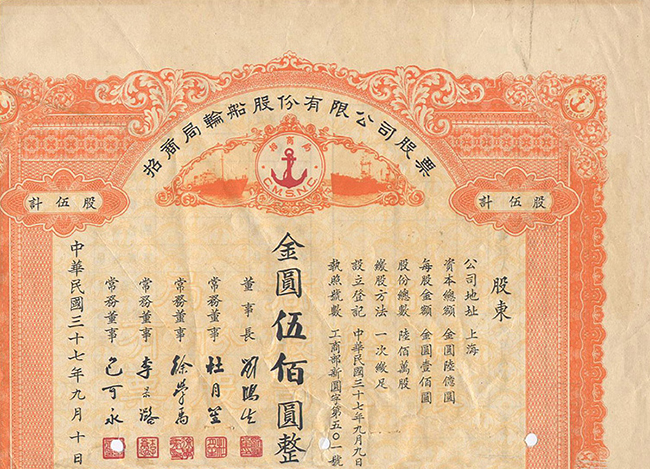 招商局輪船股份有限公司股票
招商局
C.M.S.N.C.
計伍股
計伍股
股東
公司地址 上海
資本總額 金圓陸億圓
每股金額 金圓壹佰圓
股份總數 陸佰萬股
繳股方法 一次繳足
設立登記 中華民國三十七年九月九日
執照號數 工商部新圓字第五〇一號
金圓伍佰圓整
董事長 劉鴻生
常務董事 杜月笙
常務董事 徐學禹
常務董事 李景潞
常務董事 包可永
中華民國三十七年九月十日